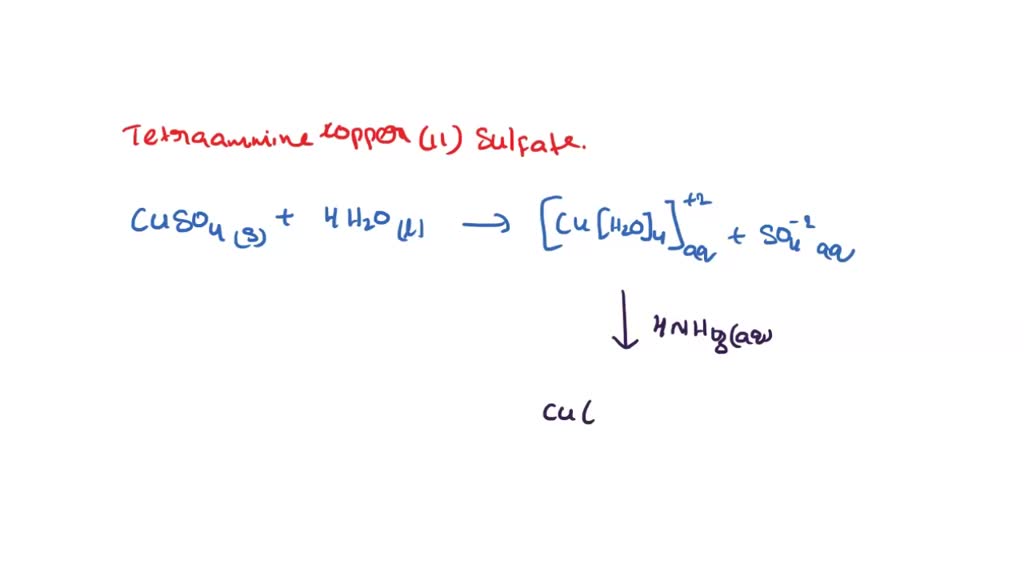 Tetraammine copper (11) Sulfate.
CuSO4 (s) + 4 H2O (l) → [Cu [H2O]4]+2 aq + SO4-2 aq
↓ 4NH3(aq)
Cu(